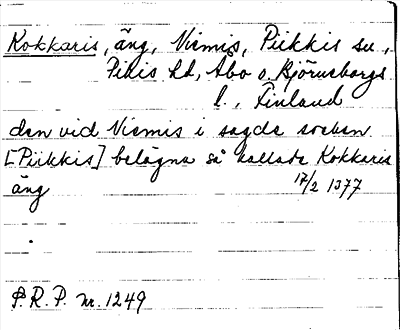 Kokkaris, äng, Viemis, Piikkis sn,
Pikis hd, Åbo o. Björneborgs
l., Finland
den vid Viemis i sagde socken
[Piikkis] belägna så kallade Kokkaris
äng 17/2 1377
P. R. P. nr. 1249